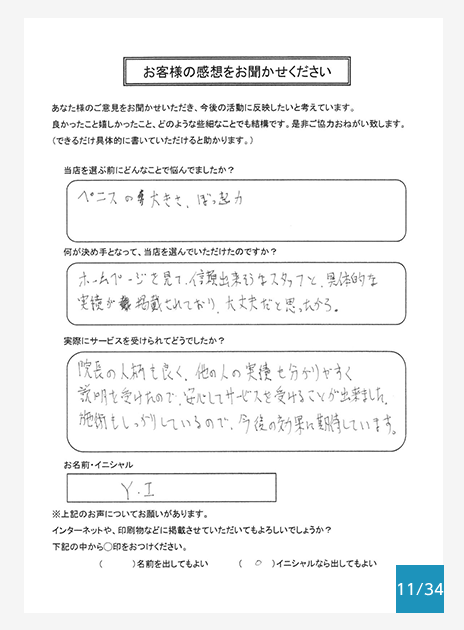 お客様の感想をお聞かせください
あなた様のご意見をお聞かせいただき、今後の活動に反映したいと考えています。
良かったこと嬉しかったこと、どのような些細なことでも結構です。是非ご協力おねがい致します。
（できるだけ具体的に書いていただけると助かります。）
当店を選ぶ前にどんなことで悩んでましたか？
ペニスの大きさ、ぼっ起力
何が決め手となって、当店を選んでいただけたのですか？
ホームページを見て、信頼出来そうなスタッフと、具体的な
実績が掲載されており、大丈夫だと思ったから。
実際にサービスを受けられてどうでしたか？
院長の人柄も良く、他の人の実績も分かりやすく
説明を受けたので、安心してサービスを受けることが出来ました。
施術もしっかりしているので、今後の効果に期待しています。
お名前・イニシャル
Y.I
※上記のお声についてお願いがあります。
インターネットや、印刷物などに掲載させていただいてもよろしいでしょうか？
下記の中から○印をおつけください。
（　　）名前を出してもよい　（　○　）イニシャルなら出してもよい
11/34